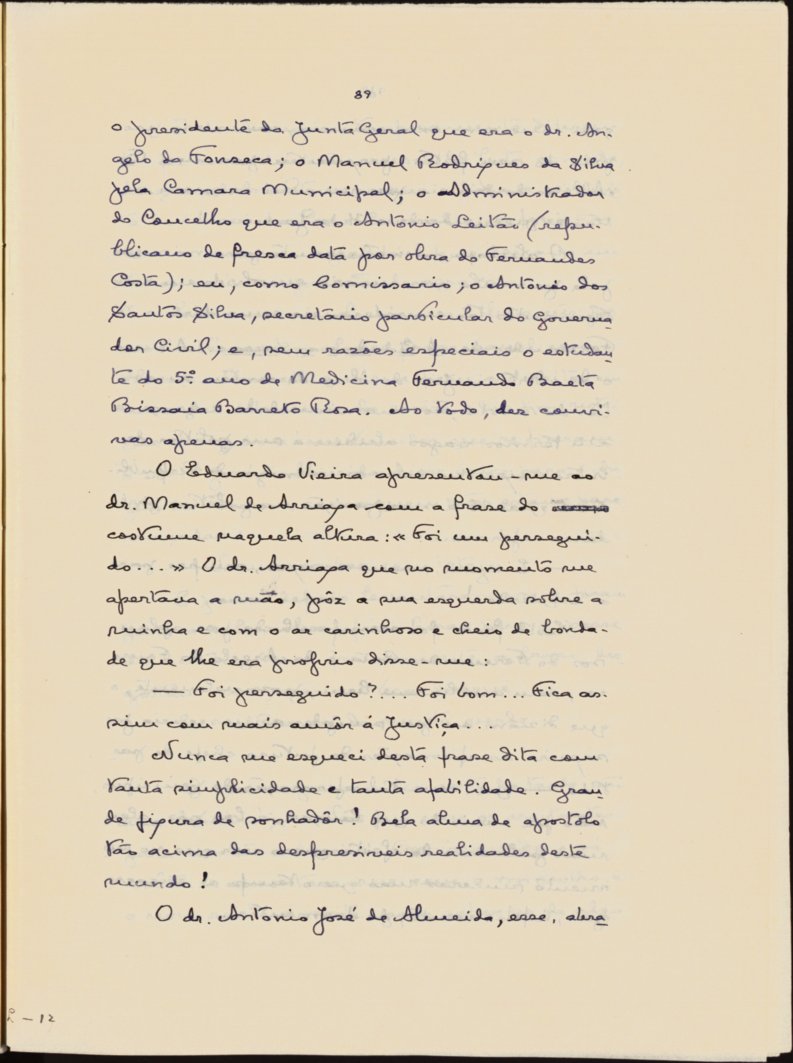 39
o presidente da Junta Geral que era o dr. An-
gelo da Fonseca; o Manuel Rodrigues da Silva
pela Camara Municipal; o Administrador
do Concelho que era o Antonio Leitão (repu-
blicano de fresca data por obra do Fernandes
Costa); eu, como Comissario; o Antonio dos
Santos Silva, secretário particular do Governa-
dor Civil; e, sem razões especiais o estudan-
te do 5.º ano de Medicina Fernando Baeta
Bissaia Barreto Rosa. Ao todo, dez convi-
vas apenas.
O Eduardo Vieira apresentou-me ao
dr. Manuel de Arriaga com a frase do
costume naquela altura: « Foi um persegui-
do... » O dr. Arriaga que no momento me
apertava a mão, pôz a sua esquerda sobre a
minha e com o ar carinhoso e cheio de bonda-
de que lhe era proprio disse-me:
— Foi perseguido?... Foi bom... Fica as-
sim com mais amôr á Justiça...
Nunca me esqueci desta frase dita com
tanta simplicidade e tanta afabilidade. Gran-
de figura de sonhadôr! Bela alma de apostolo
tão acima das despresiveis realidades deste
mundo!
O dr. Antonio José de Almeida, esse, abra-
2-12